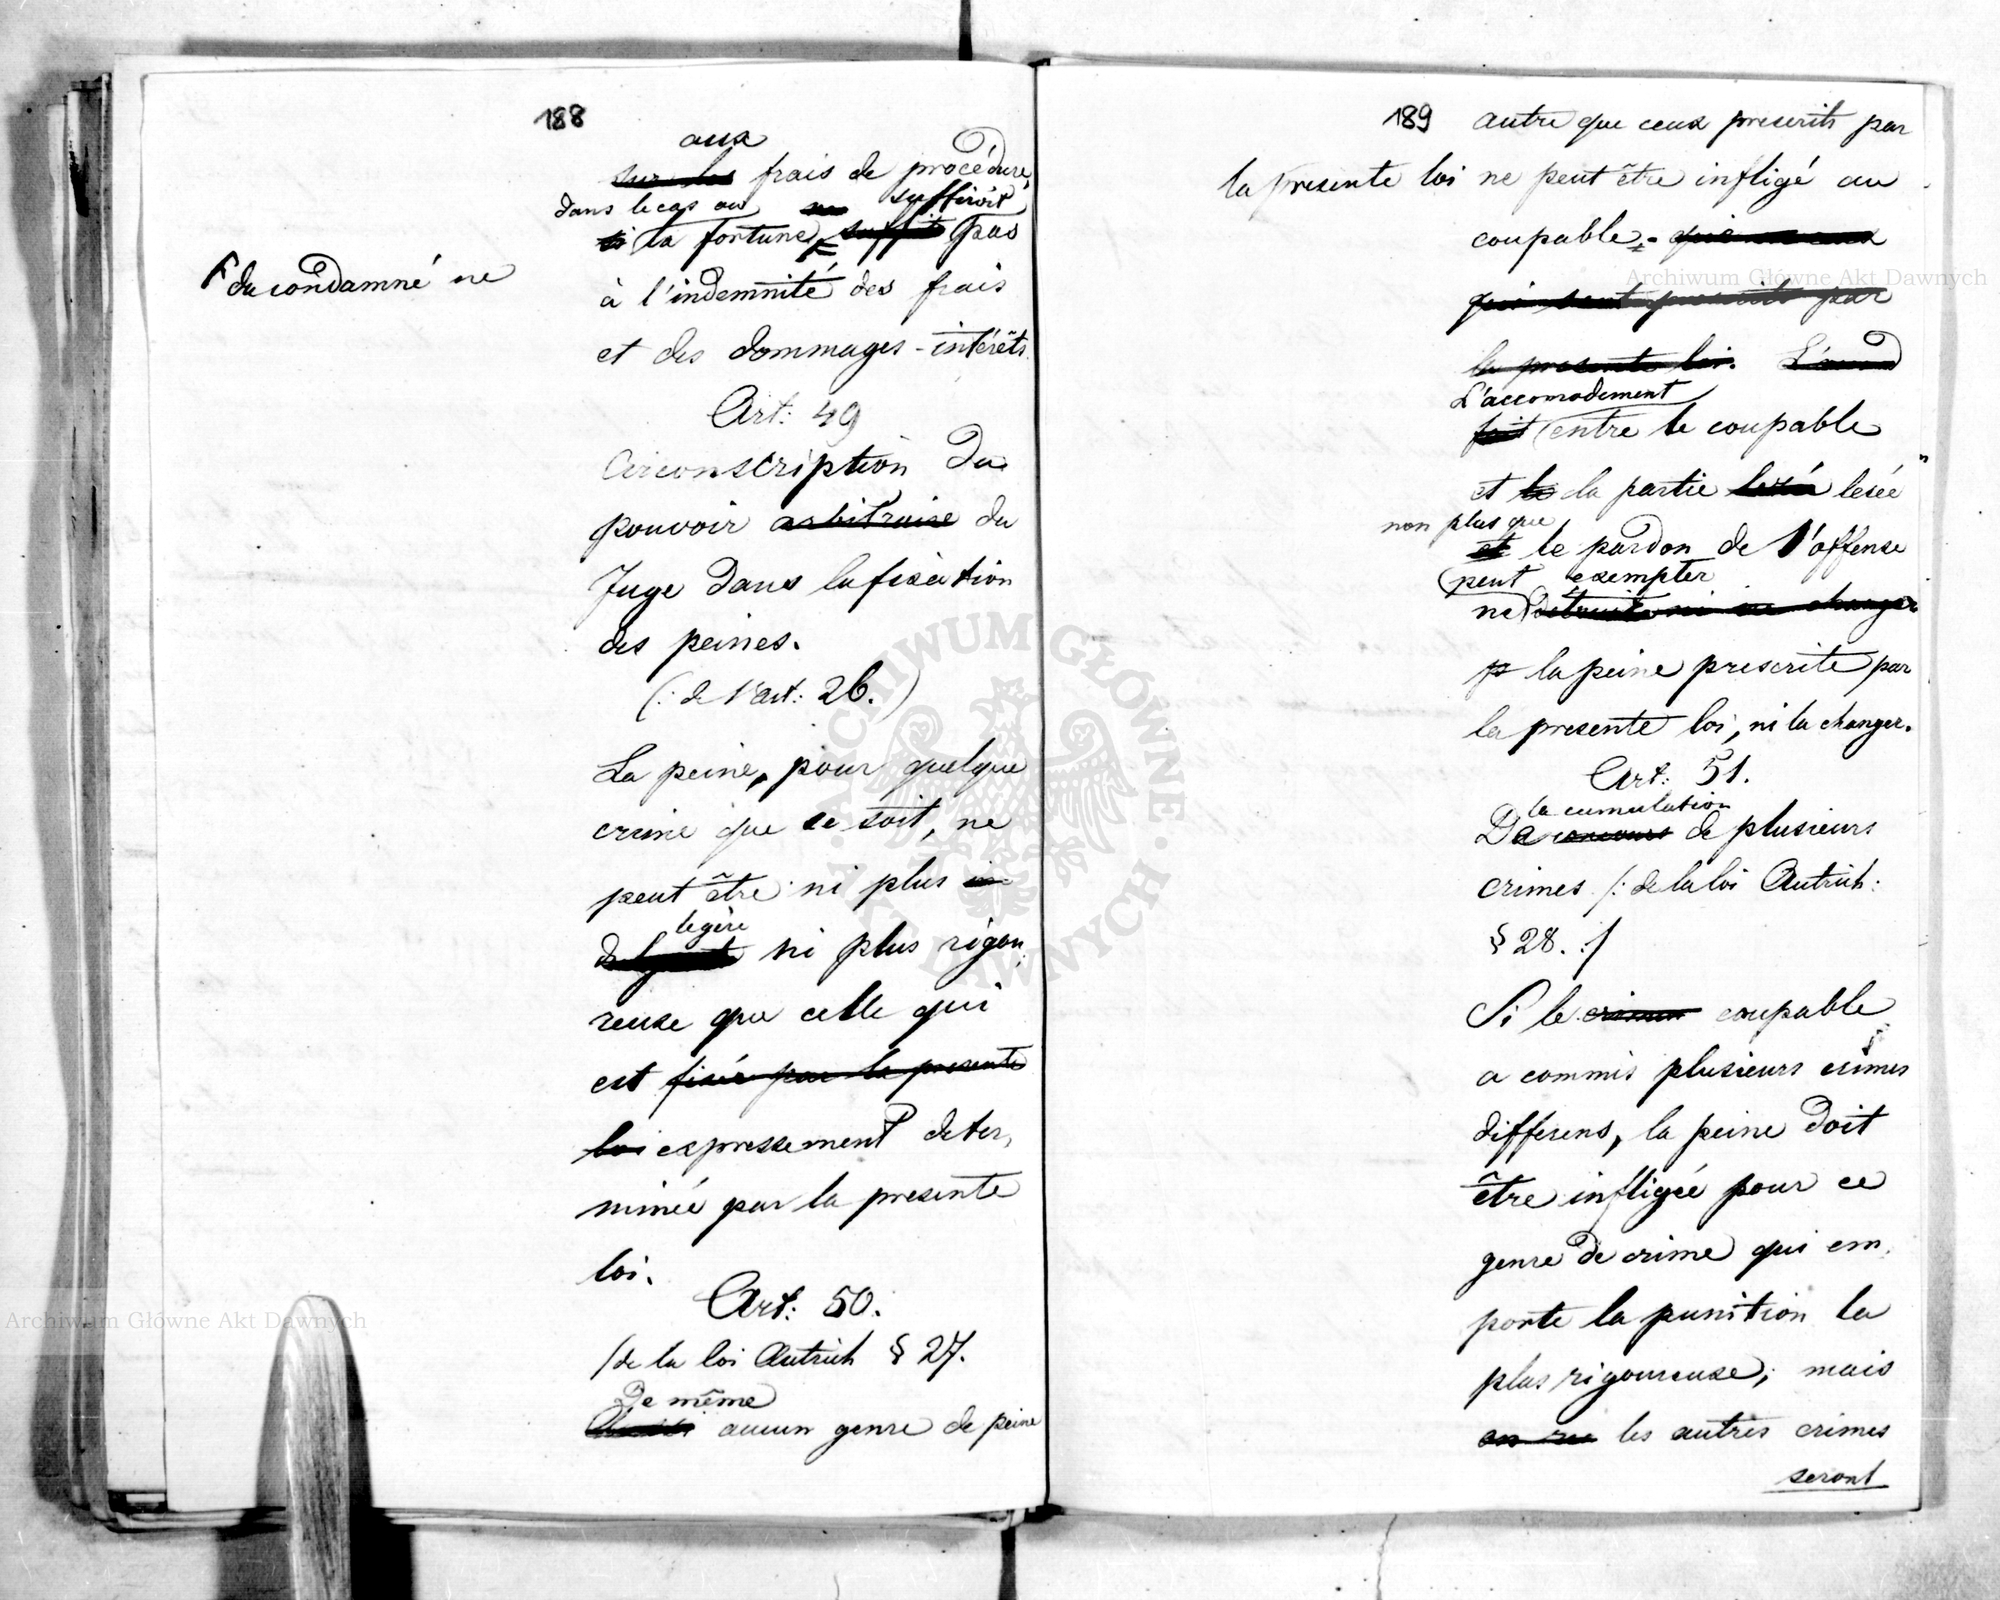 188
aux
sur les frais de procédure,
dans le cas où ne suffiroit
si la fortune suffit pas
F du condamné ne
à l'indemnité des frais
et des dommages-intérêts.
Art: 49
Circonscription du
pouvoir arbitraire du
Juge dans la fixation
des peines.
(: de l'art: 26.)
La peine, pour quelque
crime que ce soit, ne
peut être ni plus in
legère
ni plus rigou,
reuse que celle qui
est fixée par la presente
loi expressement deter,
minée par la presente
loi.
Art: 50.
/de la loi Autrich § 27.
De même
Aussi aucun genre de peine
189 autre que ceux prescrits par
la presente loi ne peut être infligé au
coupable. que ceux
qui sont prescrits par
la presente loi. L'accord
L'accomodement
fait entre le coupable
et le la partie lezée lesée
non plus que
et le pardon de l'offense
peut exempter
ne détruit ni ne change
p la peine prescrite par
la presente loi, ni la changer.
Art: 51.
la cumulation
De concours de plusieurs
crimes /: de la loi Autrich:
§ 28. :/
Si le crimen coupable
a commis plusieurs crimes
differens, la peine doit
être infligée pour ce
genre de crime qui em,
porte la punition la
plus rigoureuse; mais
on ne les autres crimes
seront
Archiwum Główne Akt Dawnych
Archiwum Główne Akt Dawnych
ARCHIWUM GŁÓWNE AKT DAWNYCH